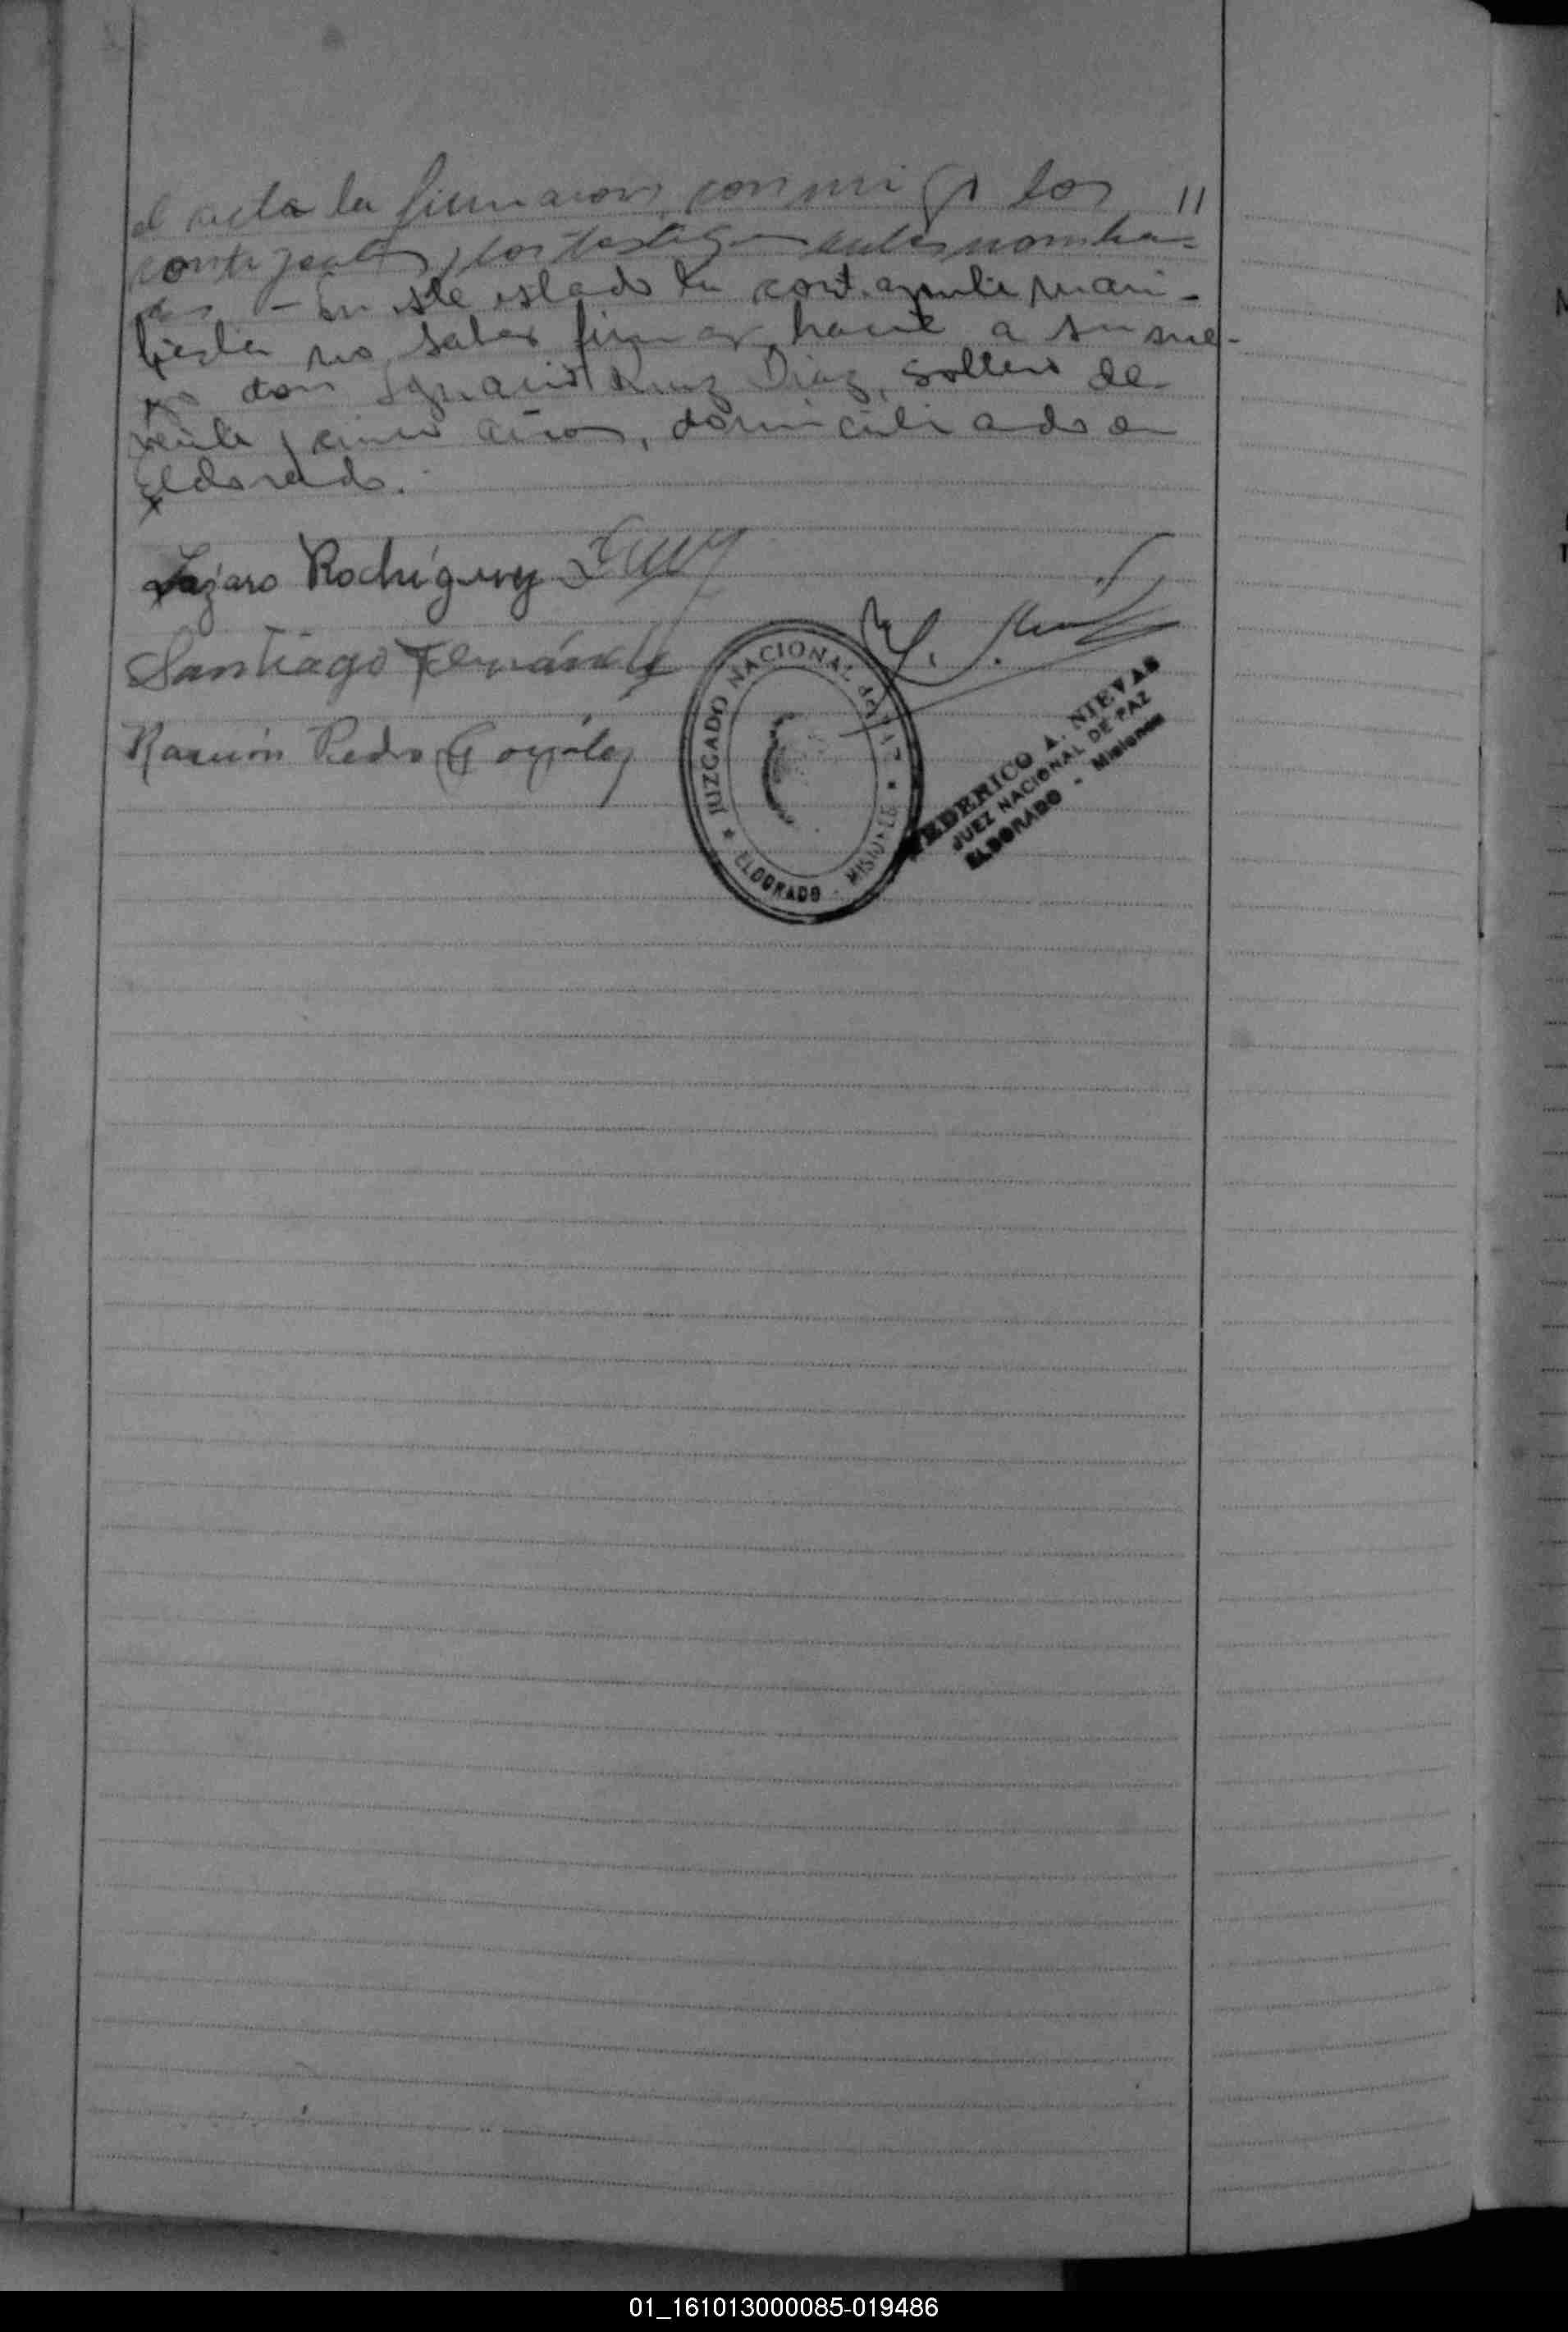 el acta la firmaron conmigo los 11
contrayentes y los testigos antes nombra=
dos - En este estado la contrayente mani-
fiesta no saber firmar, hace a su rue-
go don Ignacio Ruiz Diaz, soltero de
veinte y cinco años, domiciliado en
Eldorado.
Lazaro Rodríguez
Santiago Fernández
Ramón Pedro González
JUZGADO NACIONAL DE PAZ
★ ELDORADO - MISIONES ★
FEDERICO A. NIEVAS
JUEZ NACIONAL DE PAZ
ELDORADO - Misiones
01_161013000085-019486